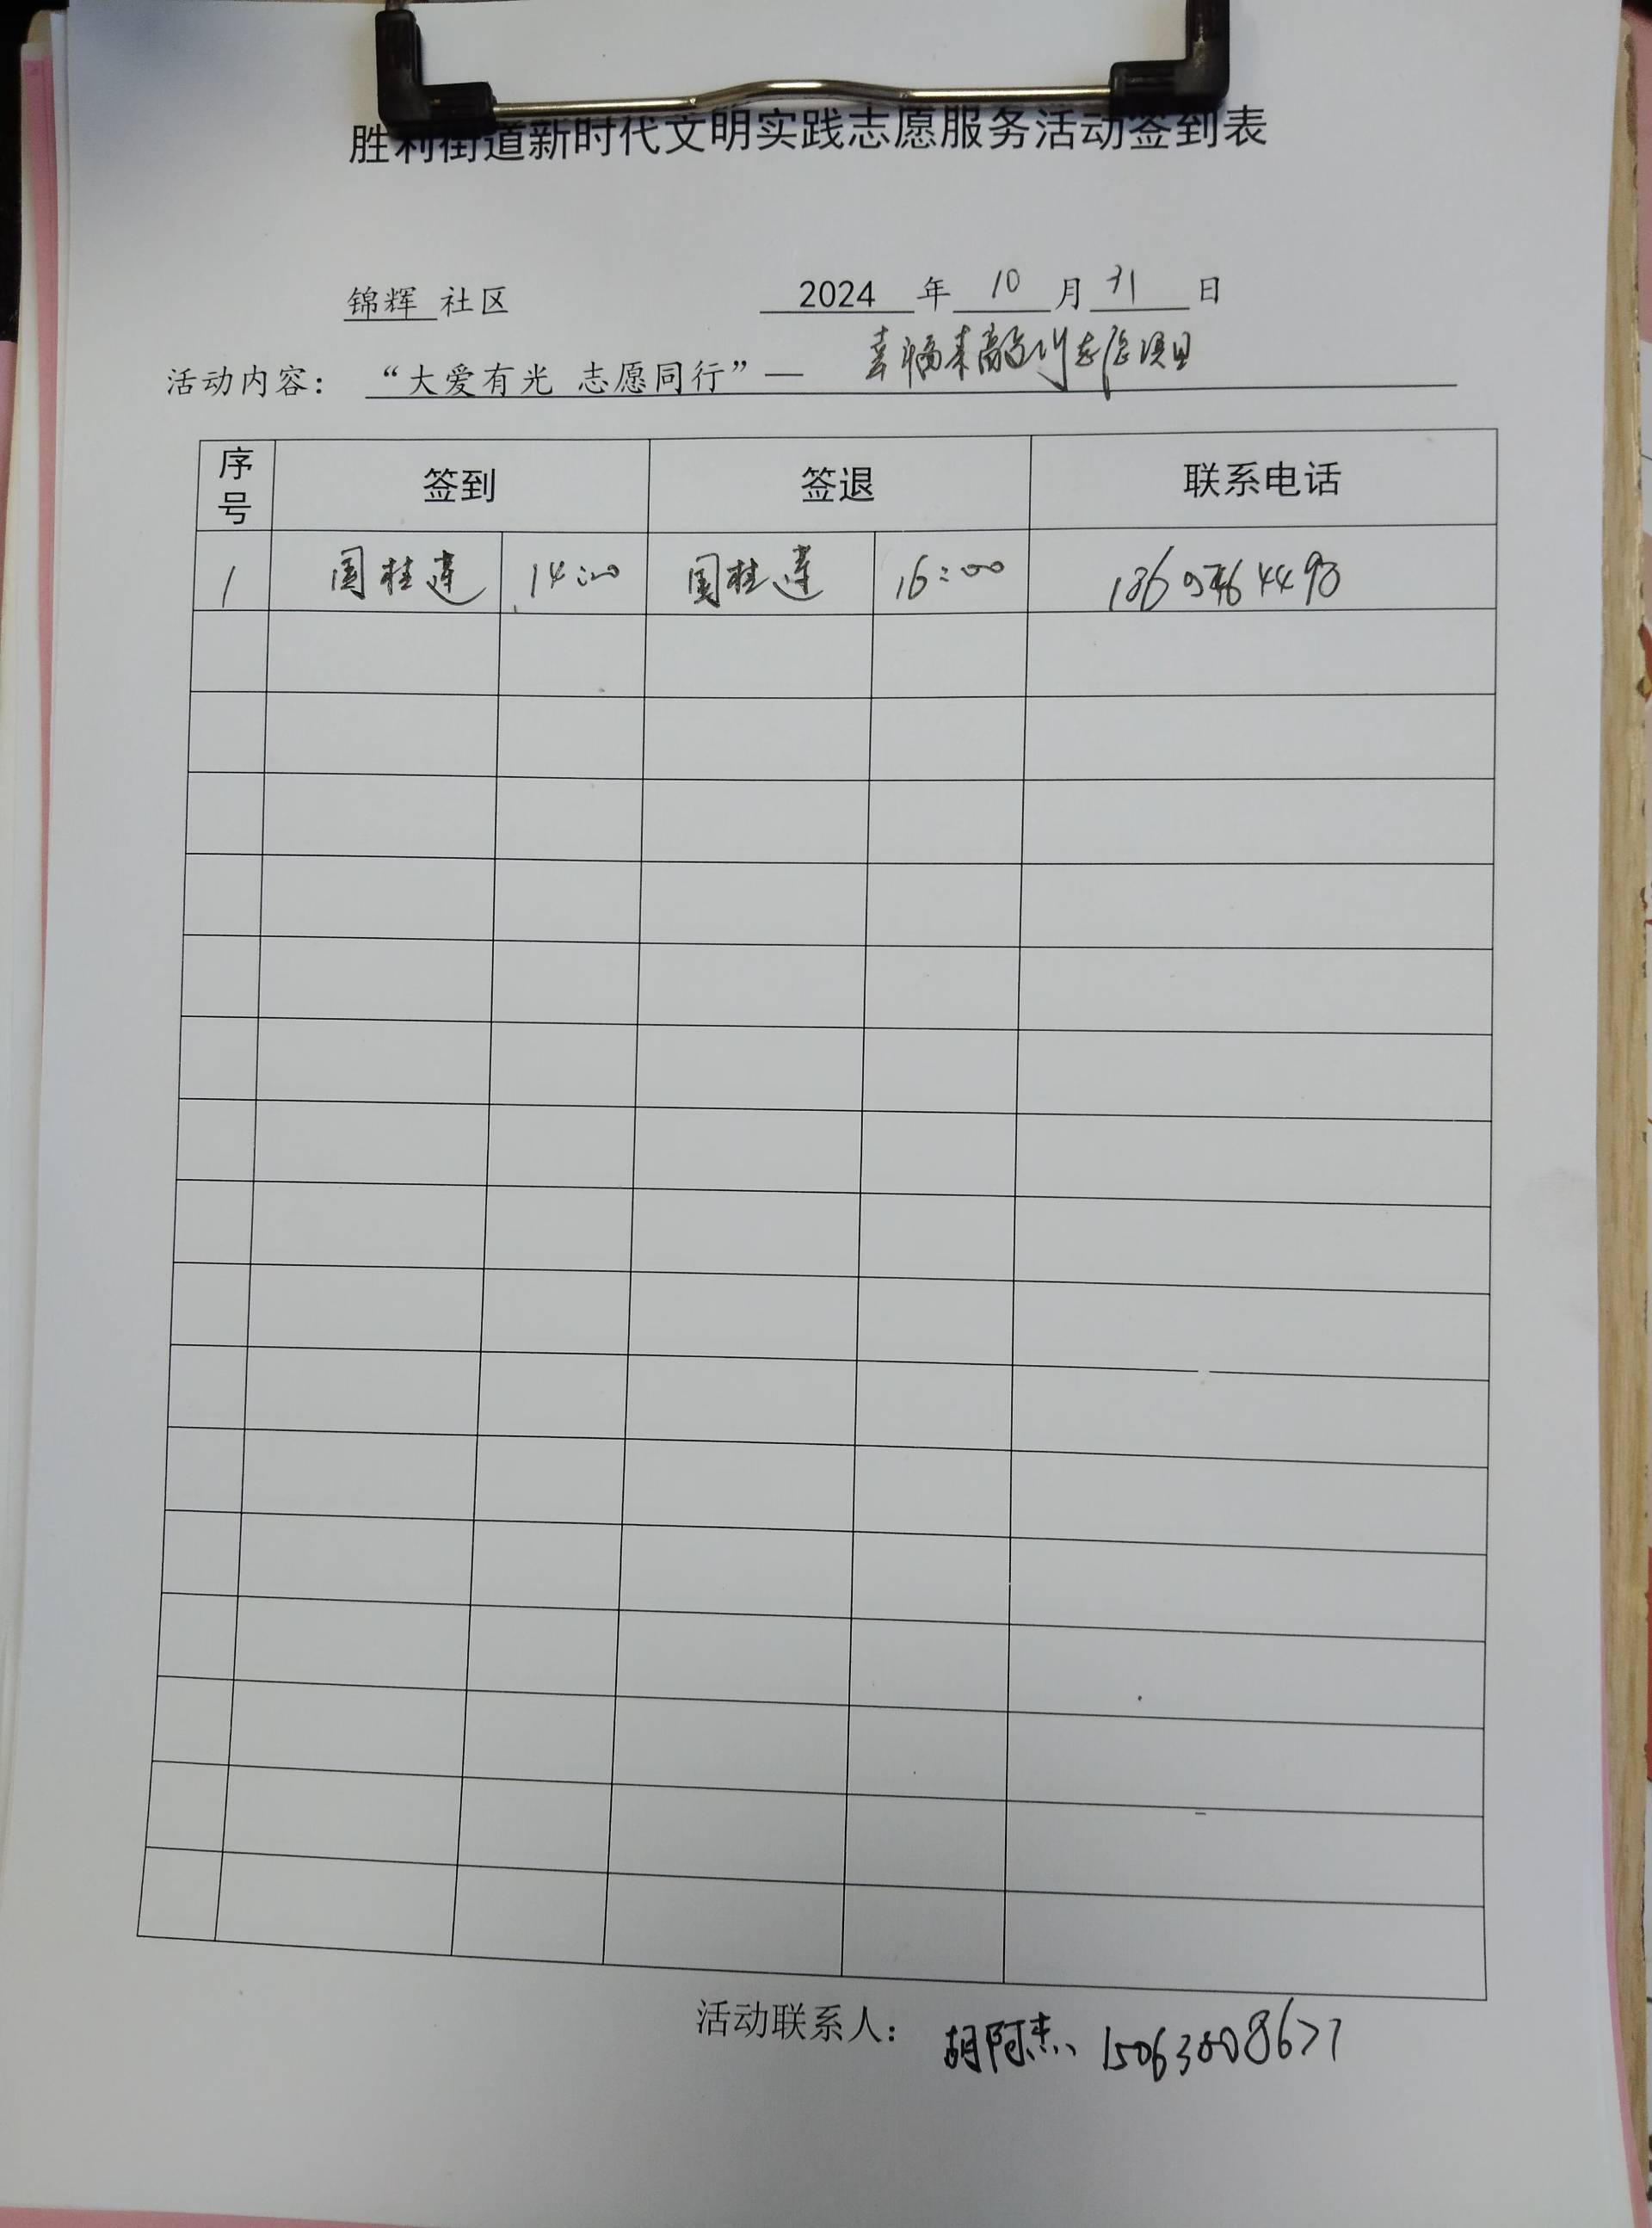 胜利街道新时代文明实践志愿服务活动签到表
锦辉 社区 2024 年 10 月 31 日
活动内容： “大爱有光 志愿同行”— 幸福来敲门志愿项目
序号 签到 签退 联系电话
1 周桂莲 14:00 周桂莲 16:00
活动联系人：